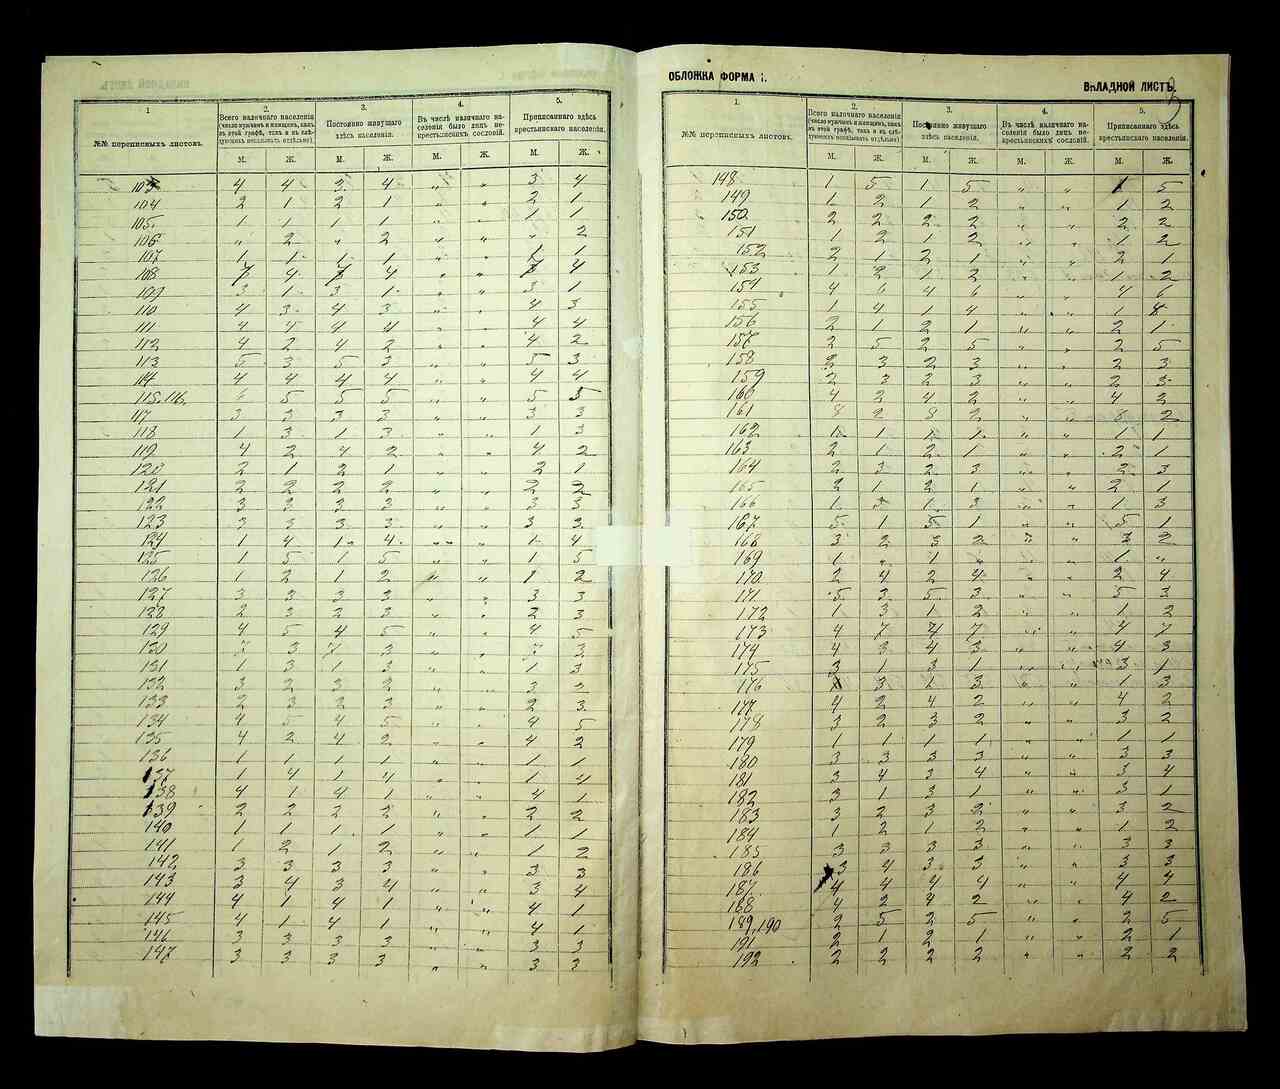 1.
2.
3.
4.
5.
№№ переписныхъ листовъ.
Всего наличнаго населенія
(число мужчинъ и женщинъ, какъ
въ этой графѣ, такъ и въ слѣ-
дующихъ показывать отдѣльно)
Постоянно живущаго
здѣсь населенія.
Въ числѣ наличнаго на-
селенія было лицъ не-
крестьянскихъ сословій.
Приписаннаго здѣсь
крестьянскаго населенія.
М. Ж. М. Ж. М. Ж. М. Ж.
103 4 4 3 4 „ „ 3 4
104 2 1 2 1 „ „ 2 1
105 1 1 1 1 „ „ 1 1
106 „ 2 „ 2 „ „ „ 2
107 1 1 1 1 „ „ 1 1
108 4 4 „ „ 4
109 3 1 3 1 „ „ 3 1
110 4 3 4 3 „ „ 4 3
111 4 4 4 4 „ „ 4 4
112 4 2 4 2 „ „ 4 2
113 5 3 5 3 „ „ 5 3
114 4 4 4 4 „ „ 4 4
115.116. 6 5 5 5 „ „ 5 5
117 3 3 3 3 „ „ 3 3
118 1 3 1 3 „ „ 1 3
119 4 2 4 2 „ „ 4 2
120 2 1 2 1 „ „ 2 1
121 2 2 2 2 „ „ 2 2
122 3 3 3 3 „ „ 3 3
123 3 3 3 3 „ „ 3 3
124 1 4 1 4 „ „ 1 4
125 1 5 1 5 „ „ 1 5
126 1 2 1 2 „ „ 1 2
127 3 3 3 3 „ „ 3 3
128 2 3 2 3 „ „ 2 3
129 4 5 4 5 „ „ 4 5
130 7 3 7 3 „ „ 7 3
131 1 3 1 3 „ „ 1 3
132 3 2 3 2 „ „ 3 2
133 2 3 2 3 „ „ 2 3
134 4 5 4 5 „ „ 4 5
135 4 2 4 2 „ „ 4 2
136 1 1 1 1 „ „ 1 1
137 1 4 1 4 „ „ 1 4
138 4 1 4 1 „ „ 4 1
139 2 2 2 2 „ „ 2 2
140 1 1 1 1 „ „ 1 1
141 1 2 1 2 „ „ 1 2
142 3 3 3 3 „ „ 3 3
143 3 4 3 4 „ „ 3 4
144 4 1 4 1 „ „ 4 1
145 4 1 4 1 „ „ 4 1
146 3 3 3 3 „ „ 3 3
147 3 3 3 3 „ „ 3 3
ОБЛОЖКА ФОРМА
ВКЛАДНОЙ ЛИСТЪ.
3
1.
2.
3.
4.
5.
№№ переписныхъ листовъ.
Всего наличнаго населенія
(число мужчинъ и женщинъ, какъ
въ этой графѣ, такъ и въ слѣ-
дующихъ показывать отдѣльно)
Постоянно живущаго
здѣсь населенія.
Въ числѣ наличнаго на-
селенія было лицъ не-
крестьянскихъ сословій.
Приписаннаго здѣсь
крестьянскаго населенія.
М. Ж. М. Ж. М. Ж. М. Ж.
148 1 5 1 5 „ „ 1 5
149 1 2 1 2 „ „ 1 2
150 2 2 2 2 „ „ 2 2
151 1 2 1 2 „ „ 1 2
152 2 1 2 1 „ „ 2 1
153 1 2 1 2 „ „ 1 2
154 4 6 4 6 „ „ 4 6
155 1 4 1 4 „ „ 1 4
156 2 1 2 1 „ „ 2 1
157 2 5 2 5 „ „ 2 5
158 2 3 2 3 „ „ 2 3
159 2 3 2 3 „ „ 2 3
160 4 2 4 2 „ „ 4 2
161 8 2 8 2 „ „ 8 2
162 1 1 1 1 „ „ 1 1
163 2 1 2 1 „ „ 2 1
164 2 3 2 3 „ „ 2 3
165 2 1 2 1 „ „ 2 1
166 1 3 1 3 „ „ 1 3
167 5 1 5 1 „ „ 5 1
168 3 2 3 2 „ „ 3 2
169 1 „ 1 „ „ „ 1 „
170 2 4 2 4 „ „ 2 4
171 5 3 5 3 „ „ 5 3
172 1 3 1 2 „ „ 1 2
173 4 7 4 7 „ „ 4 7
174 4 3 4 3 „ „ 4 3
175 3 1 3 1 „ „ 3 1
176 3 1 3 „ „ 1 3
177 4 2 4 2 „ „ 4 2
178 3 2 3 2 „ „ 3 2
179 1 1 1 1 „ „ 1 1
180 3 3 3 3 „ „ 3 3
181 3 4 3 4 „ „ 3 4
182 3 1 3 1 „ „ 3 1
183 3 2 3 2 „ „ 3 2
184 1 2 1 2 „ „ 1 2
185 3 3 3 3 „ „ 3 3
186 3 4 3 3 „ „ 3 3
187 4 4 4 4 „ „ 4 4
188 4 2 4 2 „ „ 4 2
189,190 2 5 2 5 „ „ 2 5
191 2 1 2 1 „ „ 2 1
192 2 2 2 2 „ „ 2 2